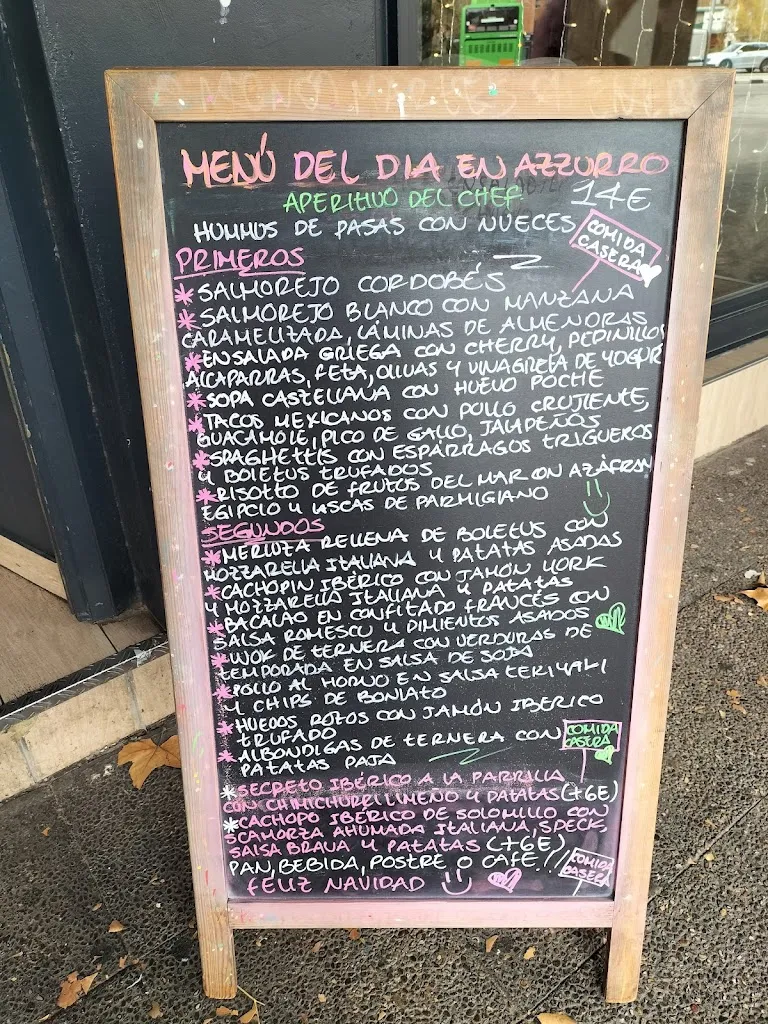 MENÚ DEL DIA EN AZZURRO
APERITIVO DEL CHEF 14E
HUMMUS DE PASAS CON NUECES
COMIDA
CASERA
PRIMEROS
*SALMOREJO CORDOBÉS
*SALMOREJO BLANCO CON MANZANA
CARAMELIZADA, LÁMINAS DE ALMENDRAS
*ENSALADA GRIEGA CON CHERRY, PEPINILLOS
ALCAPARRAS, FETA, OLIVAS Y VINAGRETA DE YOGUR
*SOPA CASTELLANA CON HUEVO POCHE
*TACOS MEXICANOS CON POLLO CRUJIENTE,
GUACAMOLE, PICO DE GALLO, JALAPEÑOS
*SPAGHETTIS CON ESPÁRRAGOS TRIGUEROS
Y BOLETUS TRUFADOS
*RISOTTO DE FRUTOS DEL MAR CON AZÁFRAN
EGIPCIO Y LASCAS DE PARMIGIANO
SEGUNDOS
*MERLUZA RELLENA DE BOLETUS CON
MOZZARELLA ITALIANA Y PATATAS ASADAS
*CACHOPIN IBÉRICO CON JAMÓN YORK
Y MOZZARELLA ITALIANA Y PATATAS
*BACALAO EN CONFITADO FRANCÉS CON
SALSA ROMESCU Y PIMIENTOS ASADOS
*WOK DE TERNERA CON VERDURAS DE
TEMPORADA EN SALSA DE SOJA
*POLLO AL HORNO EN SALSA TERIYAKI
Y CHIPS DE BONIATO
*HUEVOS ROTOS CON JAMÓN IBERICO
TRUFADO
*ALBONDIGAS DE TERNERA CON
PATATAS PAJA
COMIDA
CASERA
*SECRETO IBÉRICO A LA PARRILLA
CON CHIMICHURRI LIMEÑO Y PATATAS (+6E)
*CACHOPO IBÉRICO DE SOLOMILLO CON
SCAMORZA AHUMADA ITALIANA, SPECK,
SALSA BRAVA Y PATATAS (+6E)
PAN, BEBIDA, POSTRE O CAFÉ!!!
COMIDA
CASERA
FELIZ NAVIDAD